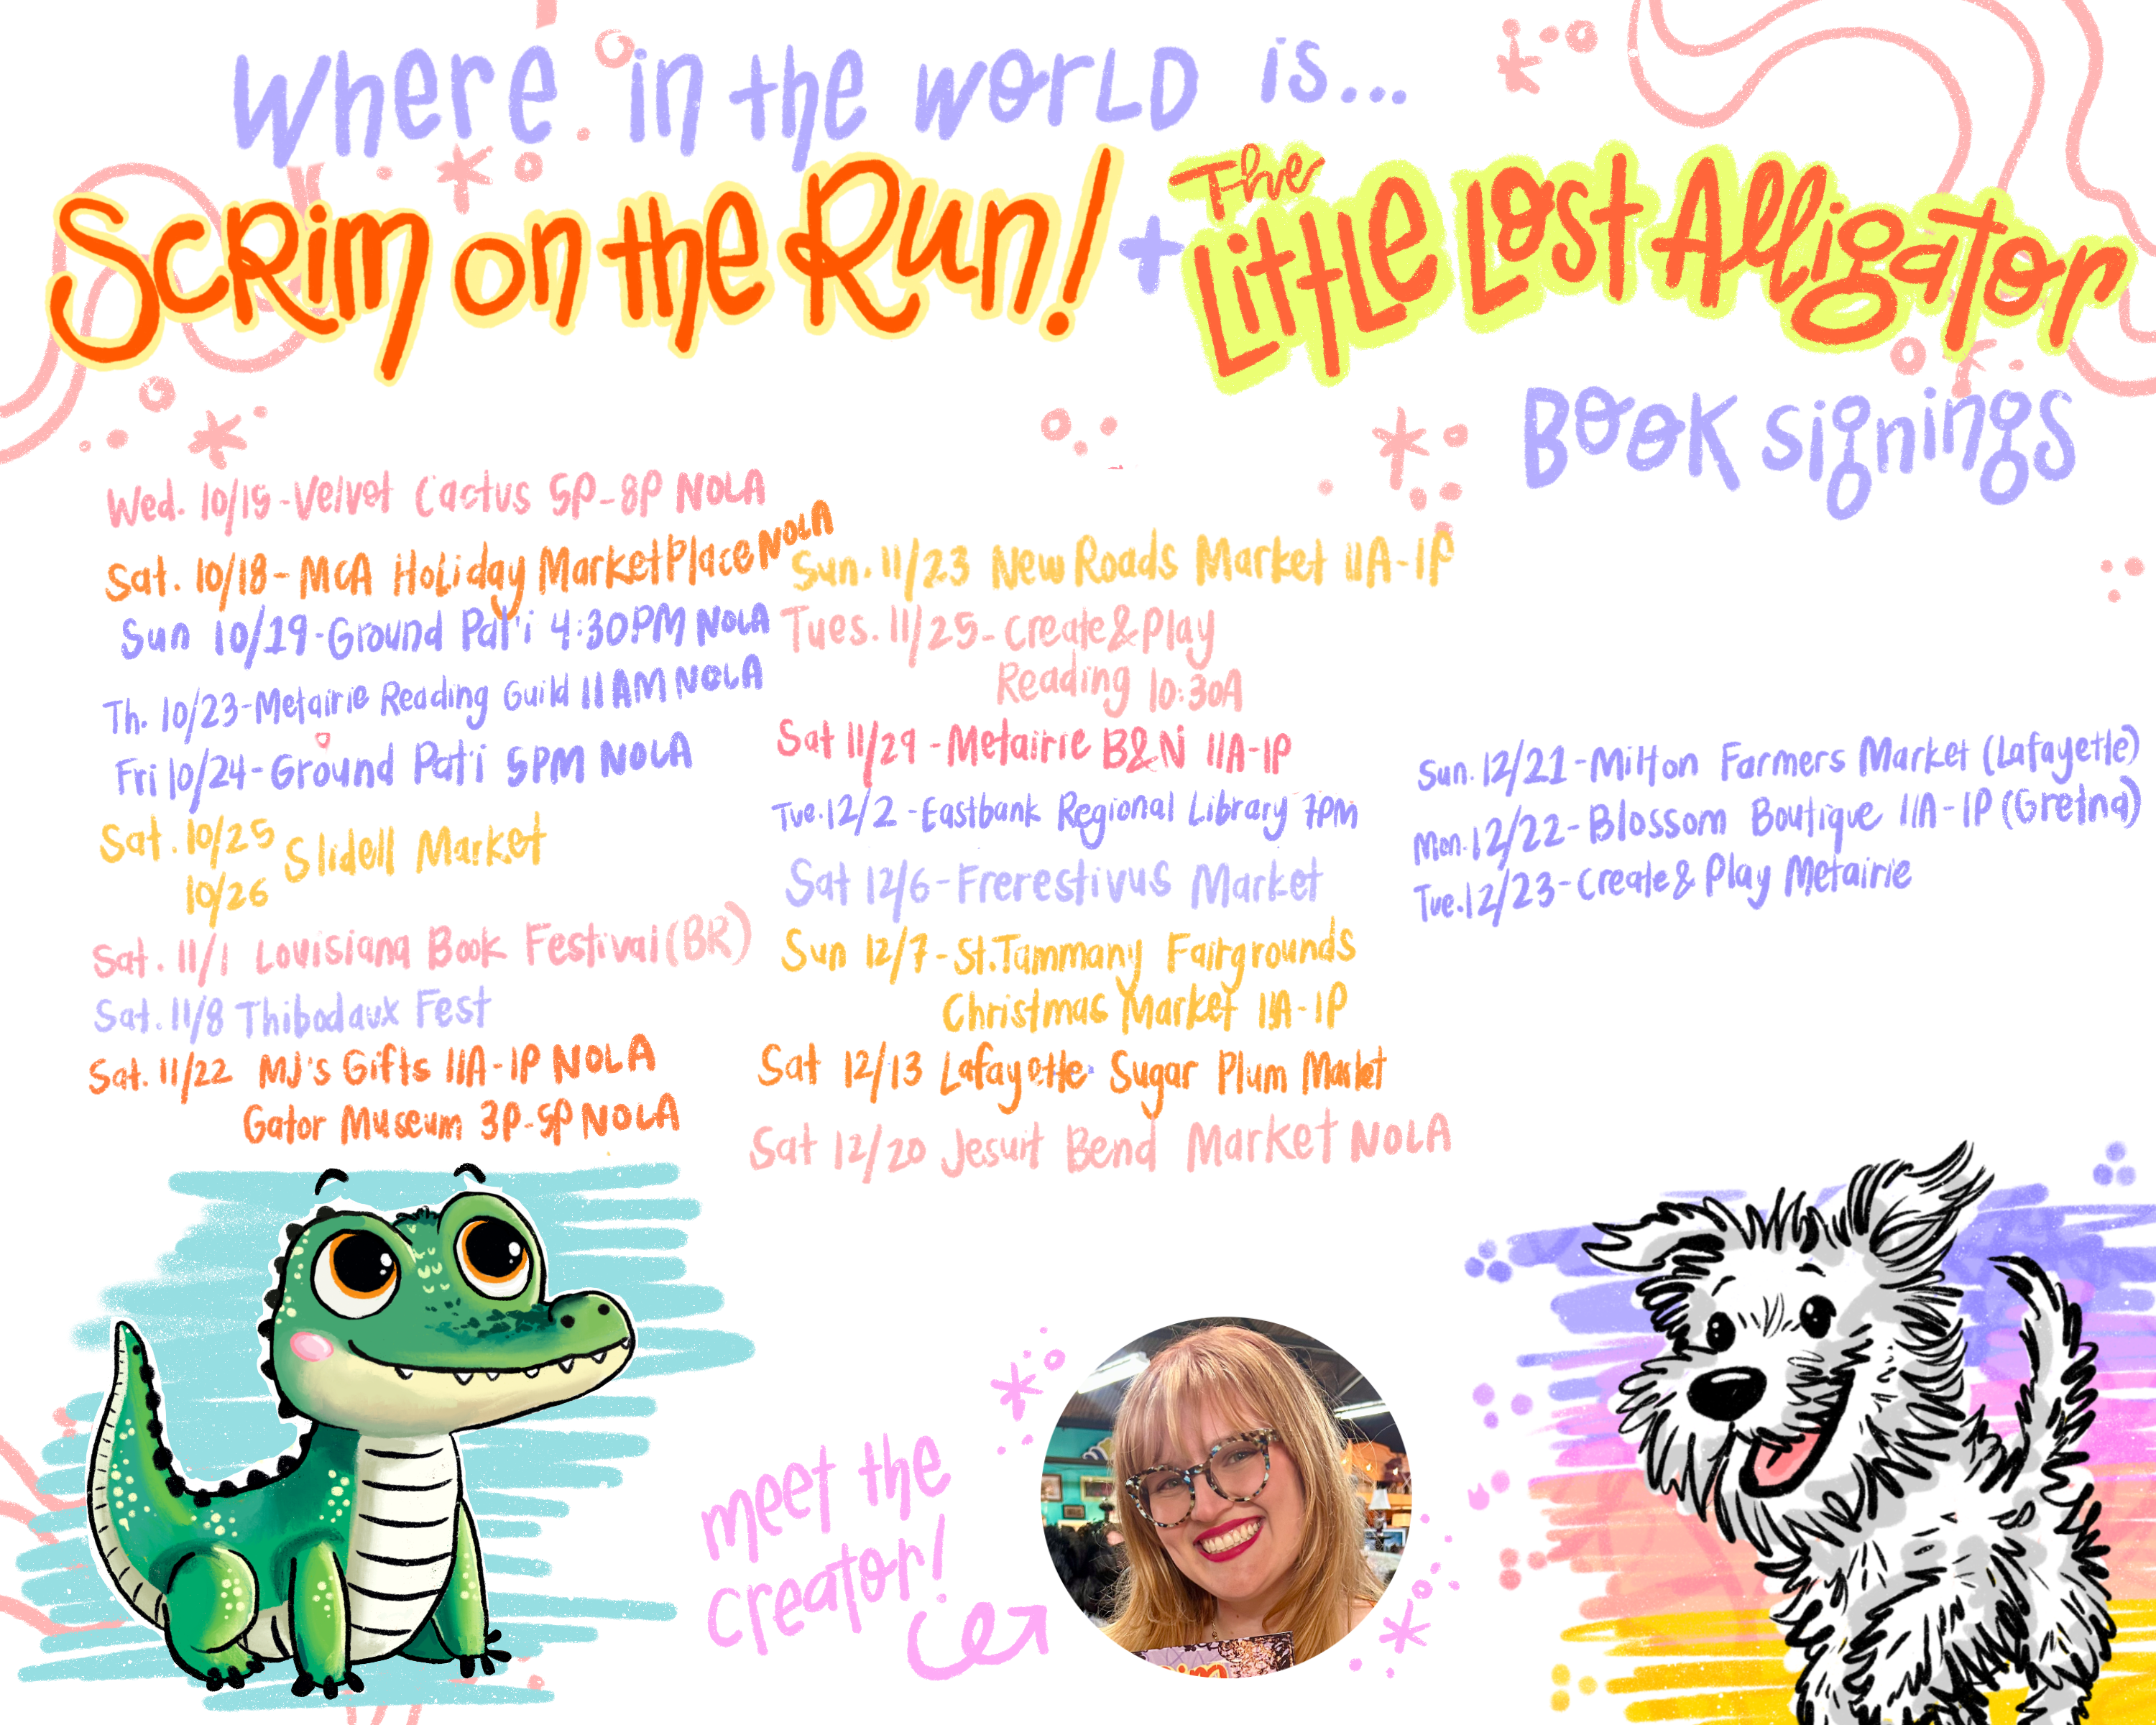 Where in the world is...
Scrim on the Run! + The Little Lost Alligator
Book signings
Wed. 10/15-Velvet Cactus 5P-8P NOLA
Sat. 10/18- McA Holiday MarketPlace NOLA
Sun 10/19-Ground Pat'i 4:30PM NOLA
Th. 10/23-Metairie Reading Guild 11AM NOLA
Fri 10/24-Ground Pat'i 5PM NOLA
Sat. 10/25 Slidell Market
10/26
Sat. 11/1 Louisiana Book Festival (BR)
Sat. 11/8 Thibodaux Fest
Sat. 11/22 MJ's Gifts 11A-1P NOLA
Gator Museum 3P-5P NOLA
Sun. 11/23 New Roads Market 11A-1P
Tues. 11/25- Create & Play
Reading 10:30A
Sat 11/29 - Metairie B&N 11A-1P
Tue. 12/2 - Eastbank Regional Library 7PM
Sat 12/6-Frerestivus Market
Sun 12/7-St. Tammany Fairgrounds
Christmas Market 11A-1P
Sat 12/13 Lafayette Sugar Plum Market
Sat 12/20 Jesuit Bend Market NOLA
Sun. 12/21-Milton Farmers Market (Lafayette)
Mon. 12/22-Blossom Boutique 11A-1P (Gretna)
Tue. 12/23-Create & Play Metairie
meet the
creator!